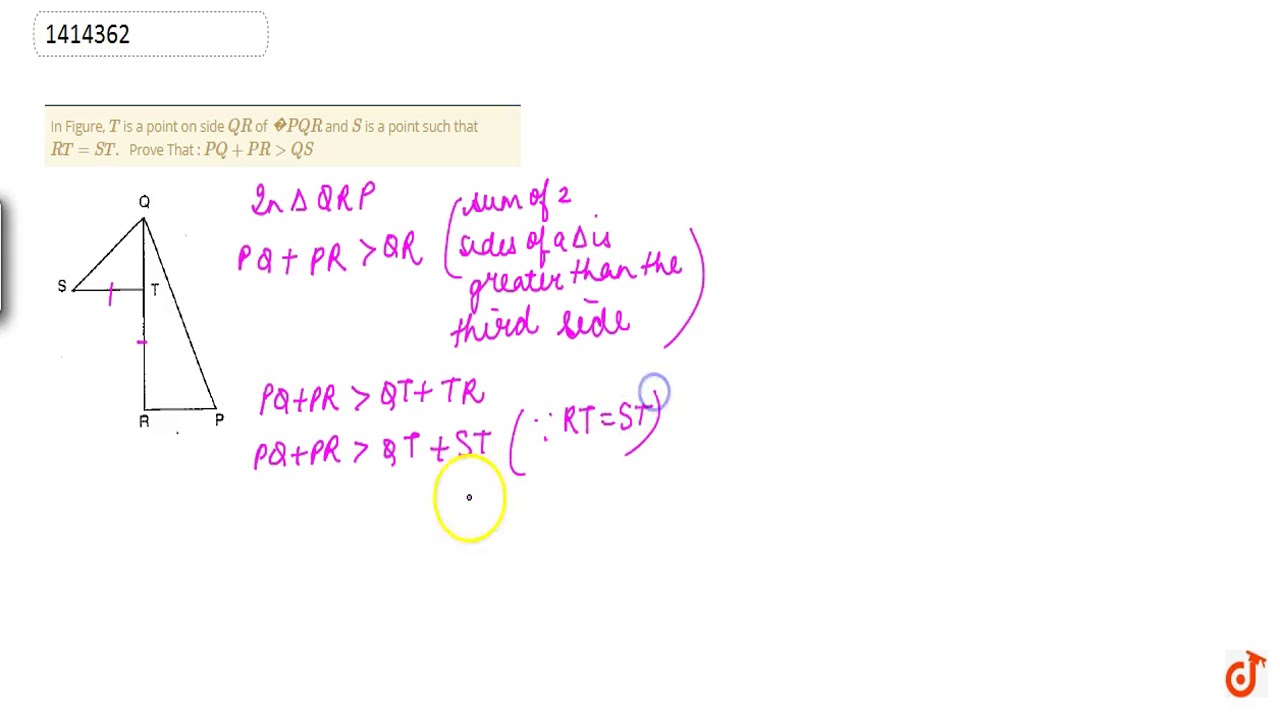 1414362
In Figure, T is a point on side QR of �PQR and S is a point such that
RT = ST. Prove That : PQ + PR > QS
Q
S
T
R
P
In Δ QRP
PQ + PR > QR
(sum of 2
sides of a Δ is
greater than the
third side)
PQ+PR > QT+ TR
PQ+PR > QT + ST (∵ RT=ST)